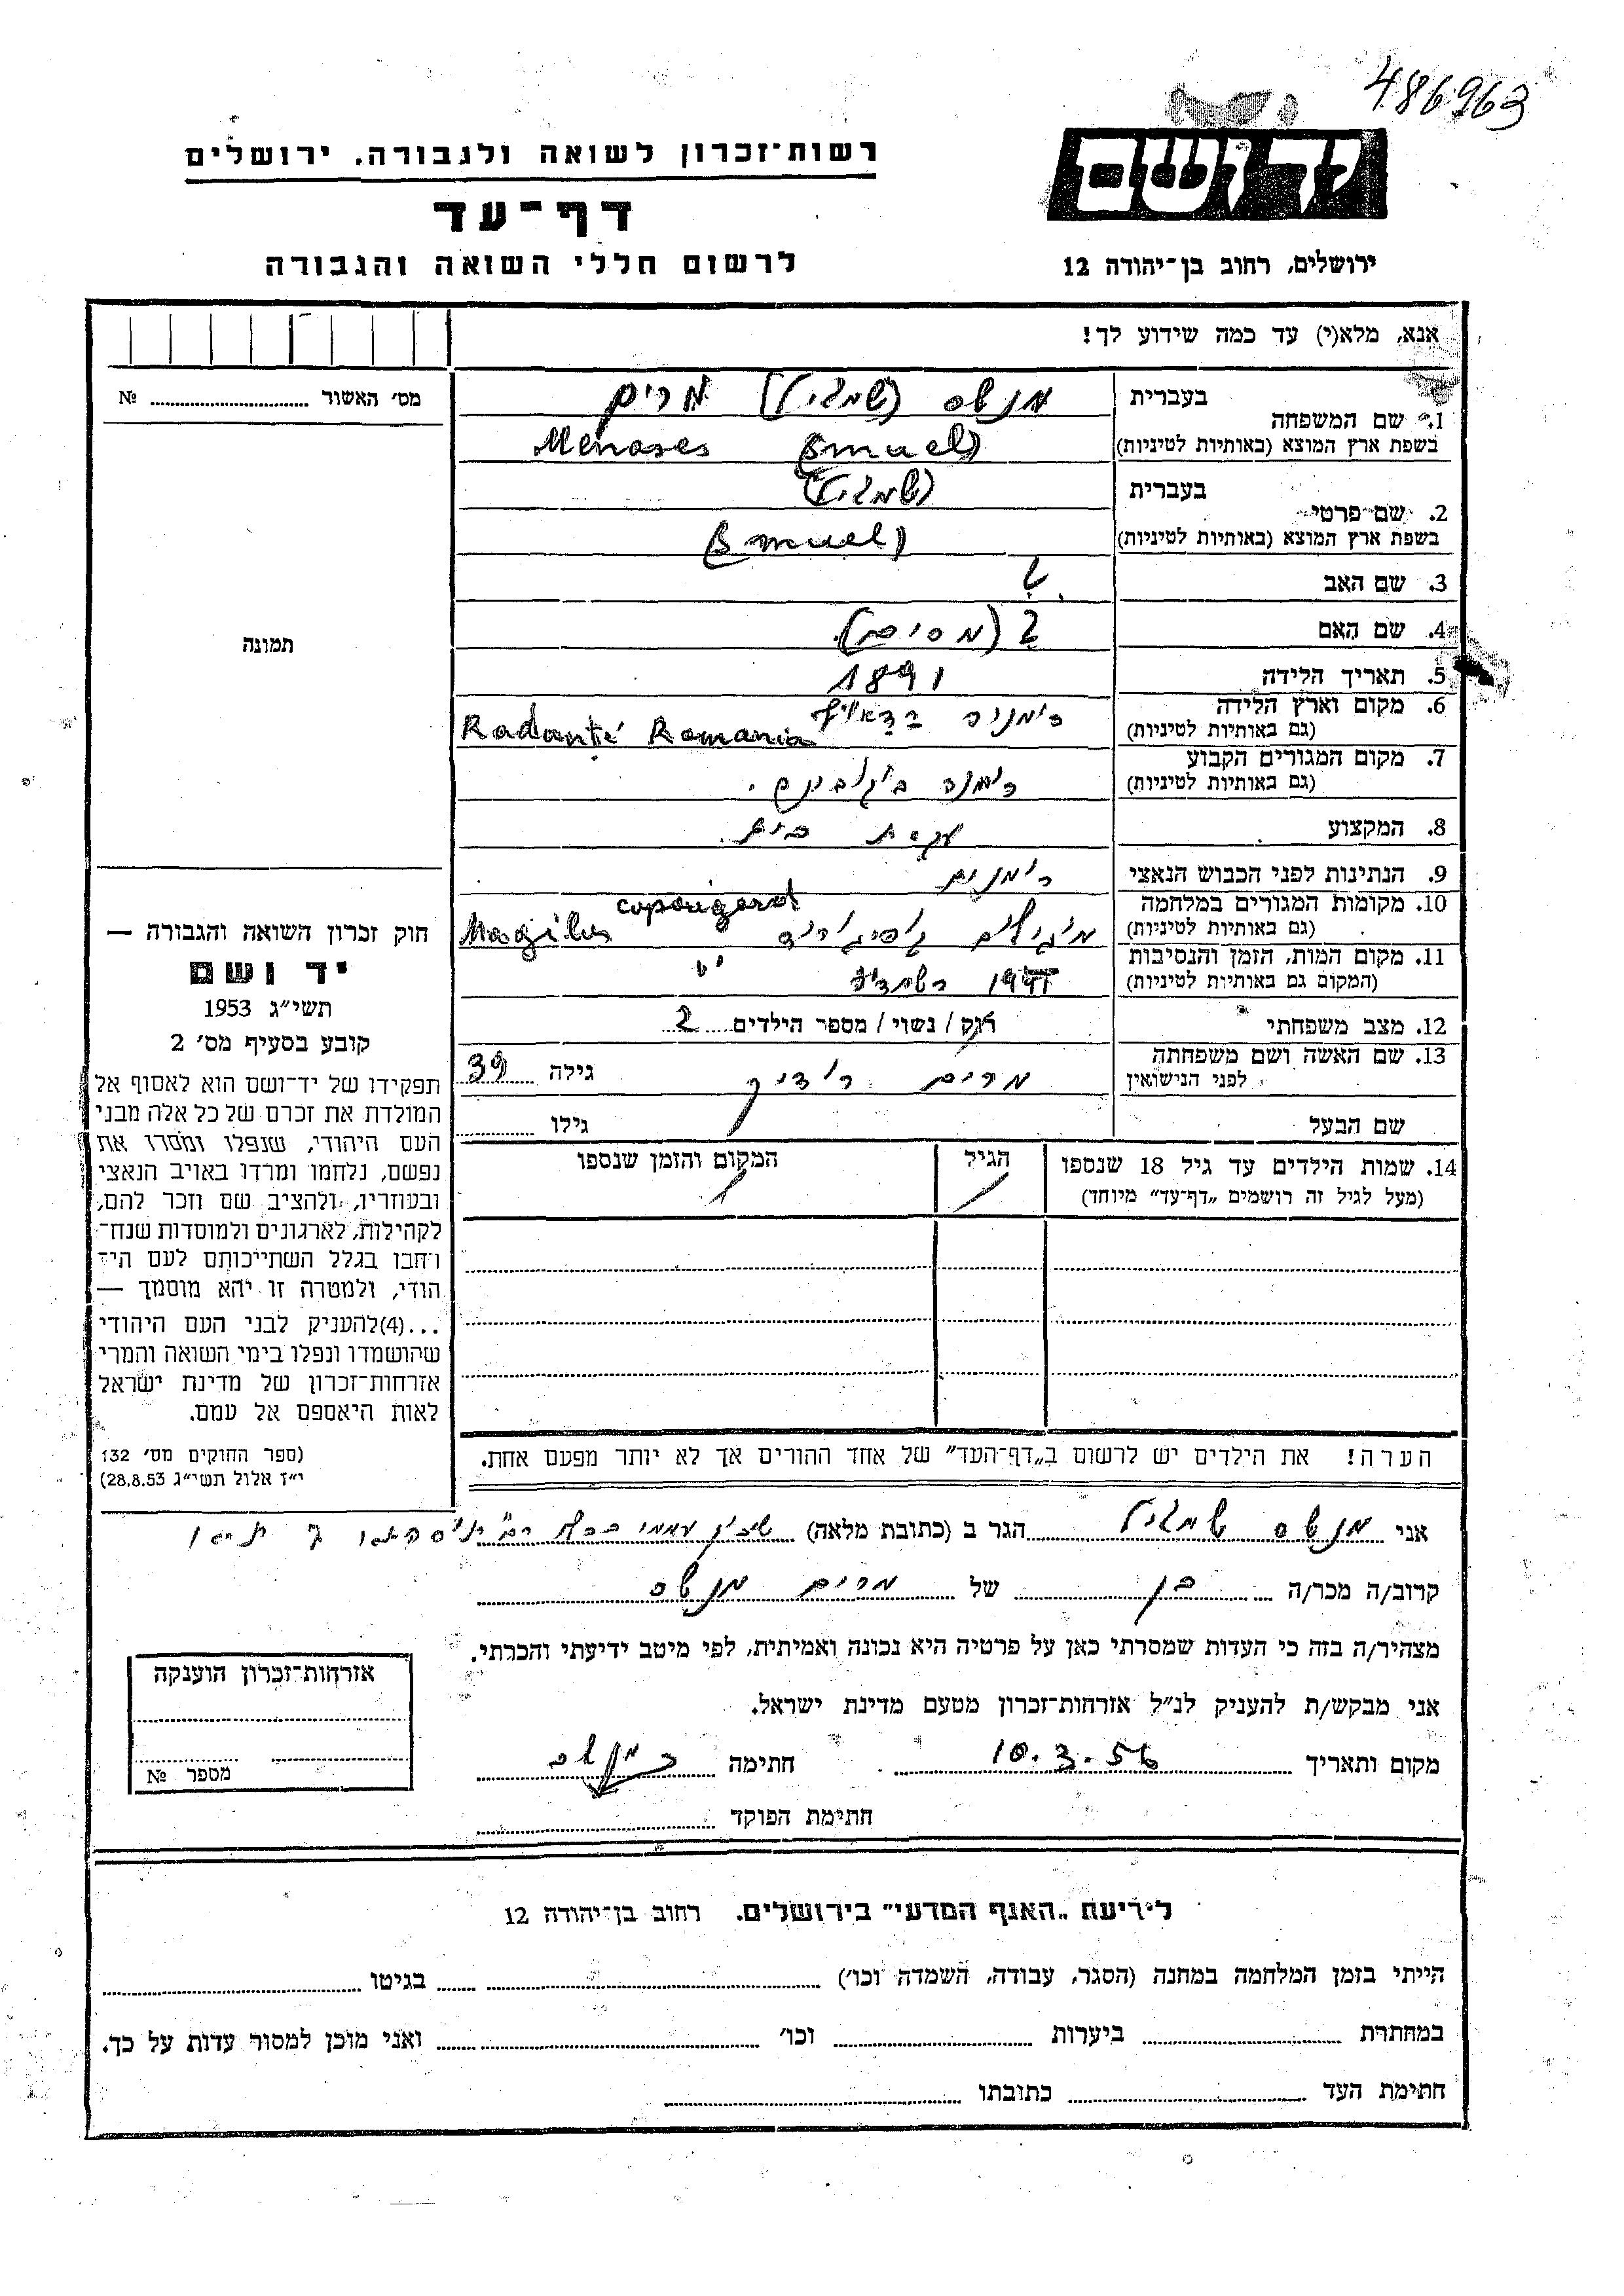 486963
יד ושם
רשות־זכרון לשואה ולגבורה. ירושלים
דף־עד
לרשום חללי השואה והגבורה
ירושלים, רחוב בן־יהודה 12
אנא, מלא(י) עד כמה שידוע לך!
מס׳ האשור № 
1. שם המשפחה
בעברית מנשס (שמויל) מרים
בשפת ארץ המוצא (באותיות לטיניות) Menases (Smuel)
2. שם פרטי
בעברית (שמויל)
בשפת ארץ המוצא (באותיות לטיניות) (Smuel)
3. שם האב ?
4. שם האם ?
תמונה
5. תאריך הלידה 1891
6. מקום וארץ הלידה
(גם באותיות לטיניות) Romania
7. מקום המגורים הקבוע
(גם באותיות לטיניות)
8. המקצוע עקרת בית
9. הנתינות לפני הכבוש הנאצי
10. מקומות המגורים במלחמה
(גם באותיות לטיניות)
11. מקום המות, הזמן והנסיבות
(המקום גם באותיות לטיניות)
12. מצב משפחתי רוק / נשוי / מספר הילדים 2
13. שם האשה ושם משפחתה
לפני הנישואין מרים גילה 39
שם הבעל גילו
14. שמות הילדים עד גיל 18 שנספו
(מעל לגיל זה רושמים „דף־עד" מיוחד)
הגיל
המקום והזמן שנספו
חוק זכרון השואה והגבורה —
יד ושם
תשי״ג 1953
קובע בסעיף מס׳ 2
תפקידו של יד־ושם הוא לאסוף אל
המולדת את זכרם של כל אלה מבני
העם היהודי, שנפלו ומסרו את
נפשם, נלחמו ומרדו באויב הנאצי
ובעוזריו, ולהציב שם וזכר להם,
לקהילות, לארגונים ולמוסדות שנח־
רחבו בגלל השתייכותם לעם הי־
הודי, ולמטרה זו יהא מוסמך —
...(4)להעניק לבני העם היהודי
שהושמדו ונפלו בימי השואה והמרי
אזרחות־זכרון של מדינת ישראל
לאות היאספם אל עמם.
(ספר החוקים מס׳ 132
י״ז אלול תשי״ג 28.8.53)
הערה! את הילדים יש לרשום ב„דף־העד" של אחד ההורים אך לא יותר מפעם אחת.
אני מנשס שמויל הגר ב (כתובת מלאה)
קרוב/ה מכר/ה בן של מרים מנשס
מצהיר/ה בזה כי העדות שמסרתי כאן על פרטיה היא נכונה ואמיתית, לפי מיטב ידיעתי והכרתי.
אני מבקש/ת להעניק לנ״ל אזרחות־זכרון מטעם מדינת ישראל.
מקום ותאריך 10.3.56 חתימה
חתימת הפוקד
אזרחות־זכרון הוענקה
מספר №
לידיעת „האגף המדעי" בירושלים. רחוב בן־יהודה 12
הייתי בזמן המלחמה במחנה (הסגר, עבודה, השמדה וכו׳) בגיטו
במחתרת ביערות וכו׳ ואני מוכן למסור עדות על כך.
חתימת העד כתובתו